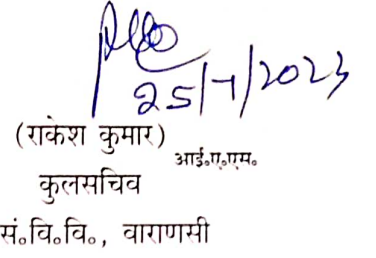 25/7/2023
(राकेश कुमार) आई॰ए॰एम॰
कुलसचिव
सं॰वि॰वि॰, वाराणसी